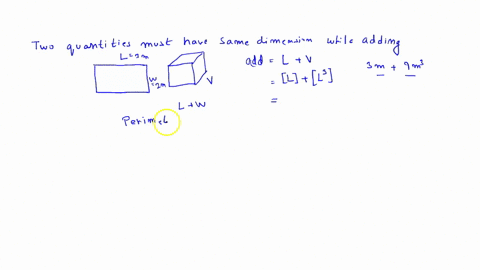 Two quantities must have same dimension while adding
L = 3m
W = 2m
V
add = L + V
= [L] + [L³]
=
3m + 9m³
L + W
Perimet